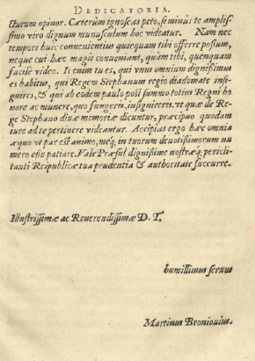 DEDICATORIA.
cturum opinor. Cæterùm ignoscas peto, si minùs te amplis-
simo viro dignum munusculum hoc videatur. Nam nec
tempori huic conuenientius quicquam tibi offerre possum,
neque cui hæc magis conueniant, quàm tibi, quenquam
facile video. Is enim tu es, qui vnus omnium dignissimus
es habitus, qui Regem Stephanum regio diademate insi-
gnires, & qui ab eodem paulo pòst summo totius Regni ho
nore ac munere, quo fungeris, insignireris. vt quæ de Re-
ge Stephano diuæ memoriæ dicuntur, præcipuo quodam
iure ad te pertinere videantur. Accipias ergo hæc omnia
æquo vt par est animo, meq; in tuorum deuotissimorum nu
mero esse patiare. Vale Præsul dignissime nostræq; pericli-
tanti Reipublicæ tua prudentia & authoritate succurre.
Illustrissimæ ac Reuerendissimæ D. T.
humillimus seruus
Martinus Broniouius.